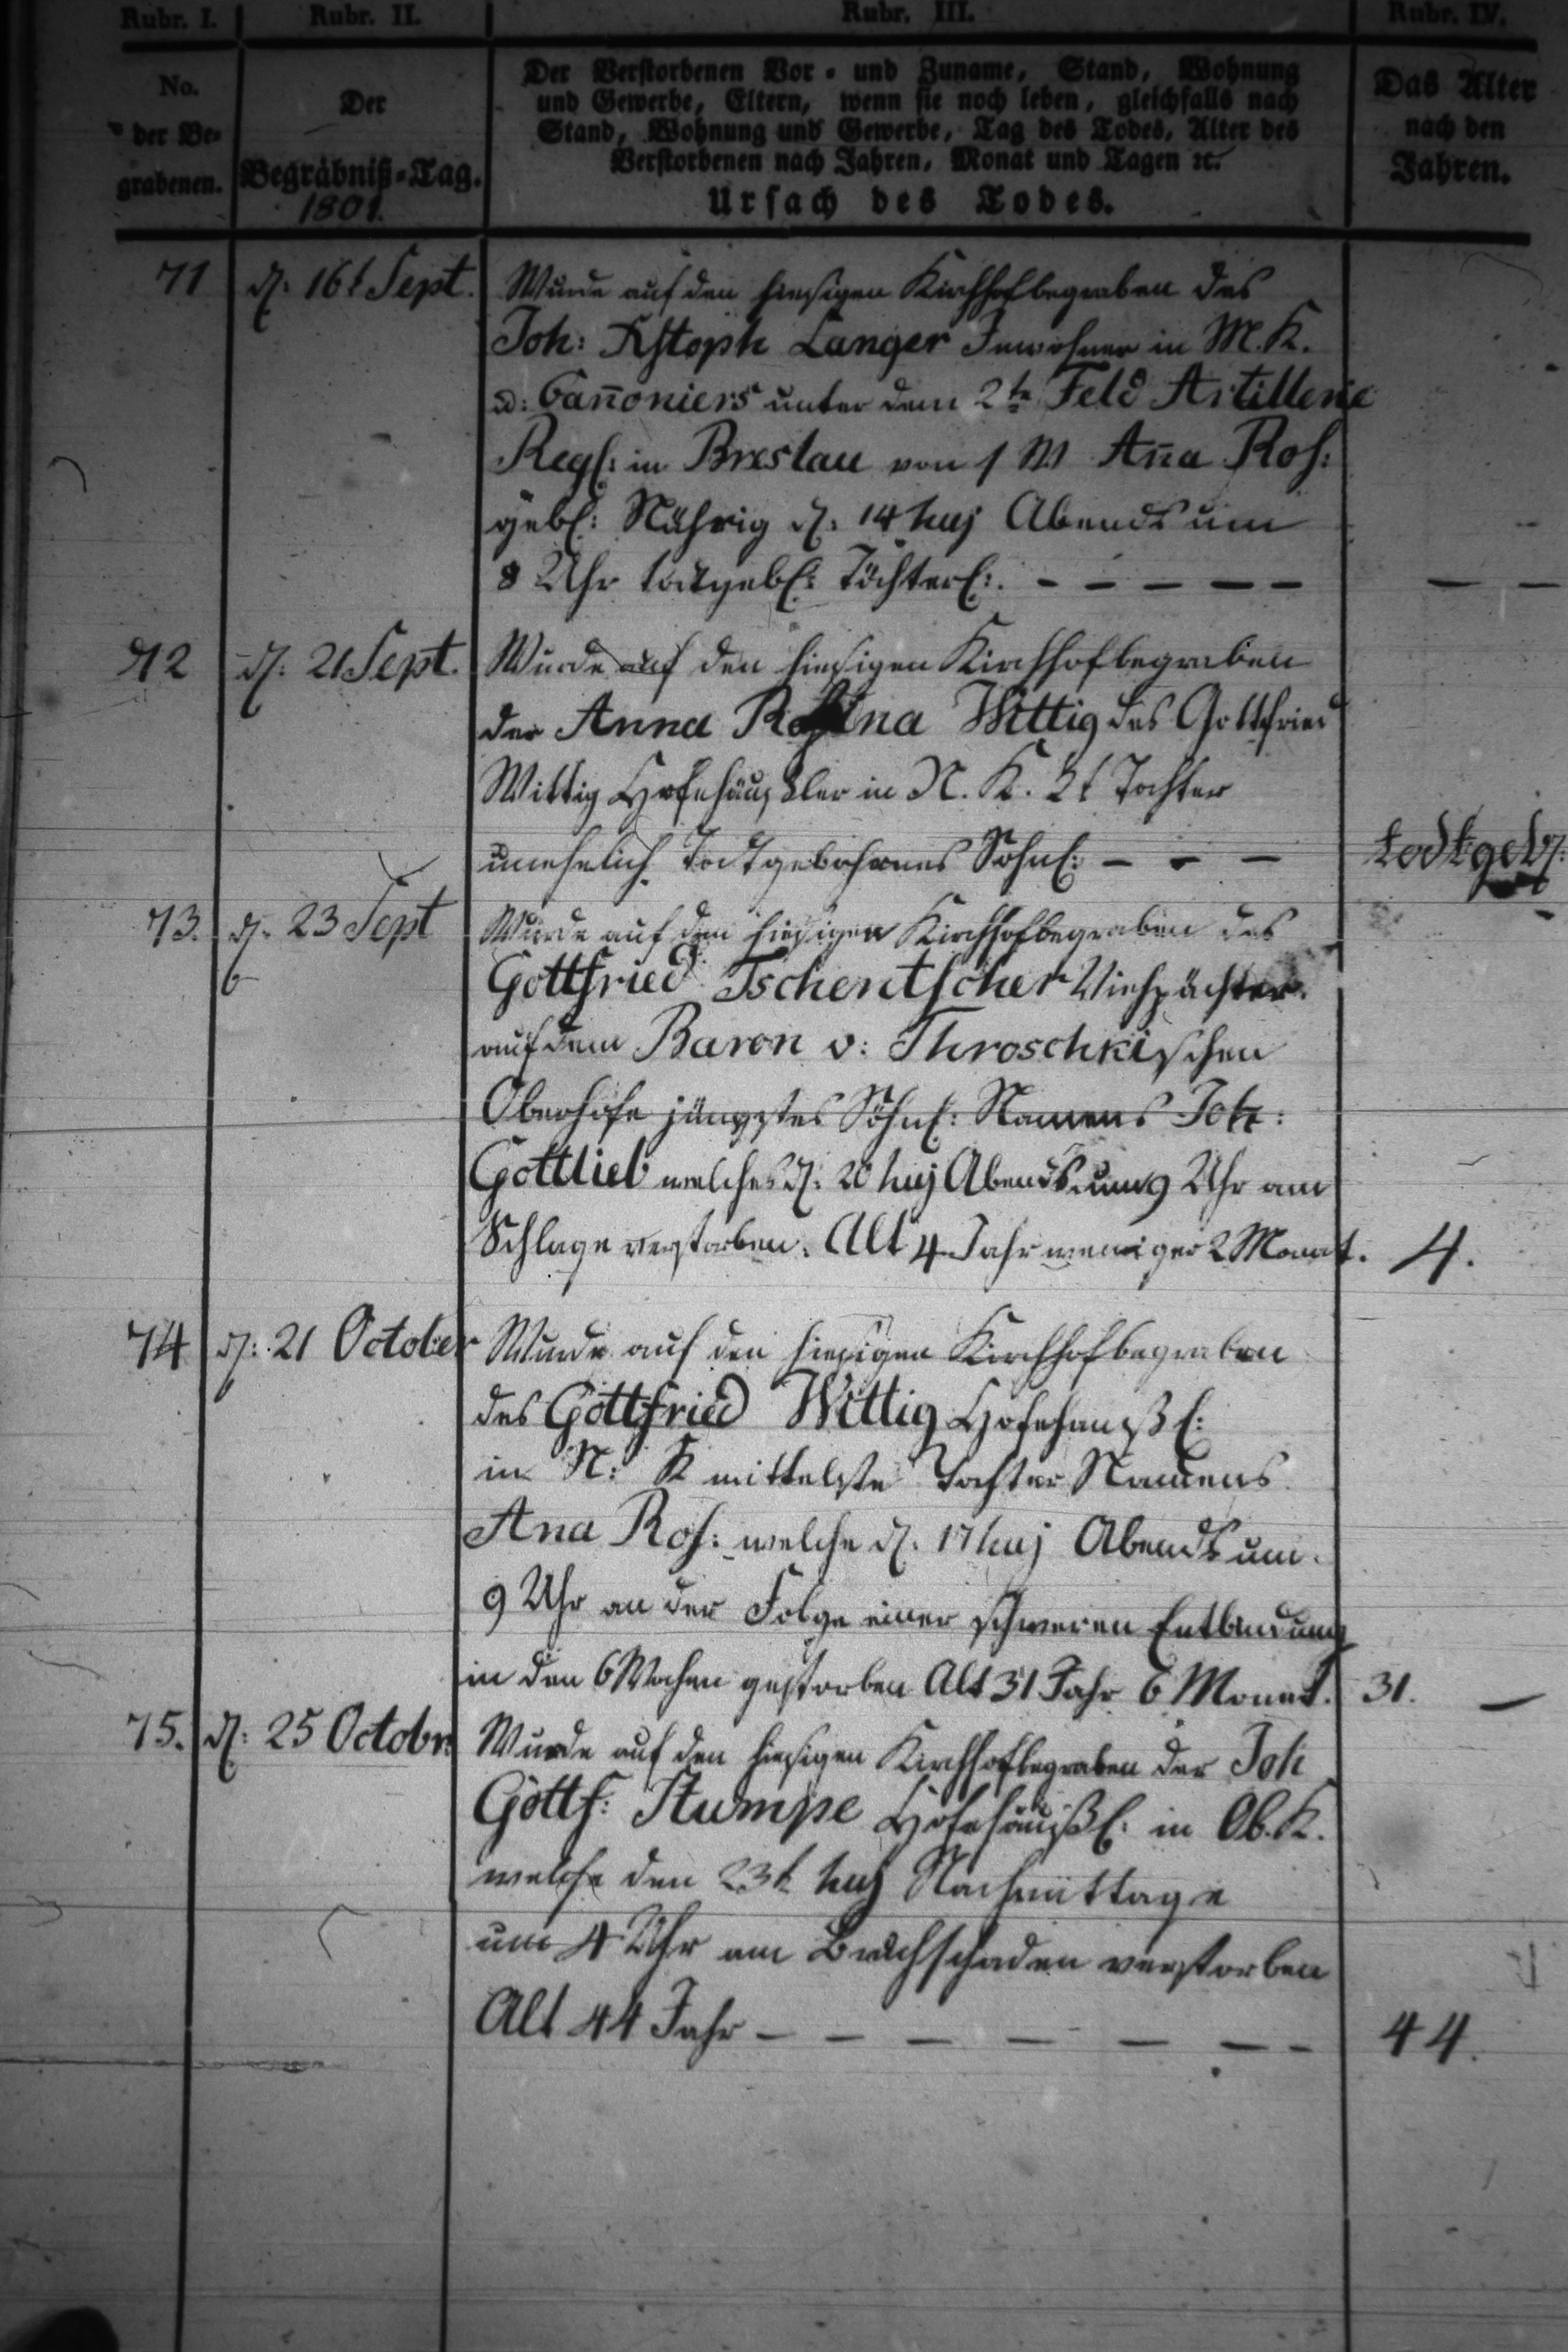 Rubr. I. Rubr. II. Rubr. III. Rubr. IV.
No.
der Be-
grabenen.
Der
Begräbniß-Tag.
1801.
Der Verstorbenen Vor- und Zuname, Stand, Wohnung
und Gewerbe, Eltern, wenn sie noch leben, gleichfalls nach
Stand, Wohnung und Gewerbe, Tag des Todes, Alter des
Verstorbenen nach Jahren, Monat und Tagen ꝛc.
Ursach des Todes.
Das Alter
nach den
Jahren.
71 d: 16t Sept. Wurde auf den hiesigen Kirchhof begraben des
Joh: Xstoph Langer Inwohner in M. K.
u: Can̄oniers unter dem 2t Feld Artillerie
Regl: in Breslau von 1 W An̄a Ros:
gebl: Nährig d: 14 huj Abends um
8 Uhr todtgebl: Töchterl: – – – – – – –
72 d: 21 Sept. Wurde auf den hiesigen Kirchhof begraben
der Anna Rosina Wittig des Gottfried
Wittig Hofehäußler in N. K. 2t Tochter
unehelich todtgebohrnes Söhnl: – – – todtgeb:
73. d. 23 Sept Wurde auf den hiesigen Kirchhof begraben des
Gottfried Tschentscher Viehpächter
auf dem Baron v: Throschkischen
Oberhofe jüngstes Söhnl: Namens Joh:
Gottlieb welches d: 20 huj Abends um 9 Uhr am
Schlage verstorben. Alt 4 Jahr weniger 2 Monat. 4.
74 d: 21 October Wurde auf den hiesigen Kirchhof begraben
des Gottfried Wittig Hofehäußl:
in N: K mittelste Tochter Namens
Ana Ros: welche d. 17 huj Abends um
9 Uhr an der Folge einer schweren Entbindung
in den 6 Wochen gestorben Alt 31 Jahr 6 Monat. 31. –
75. d: 25 Octobr: Wurde auf den hiesigen Kirchhof begraben der Joh
Gottf: Stumpe Hofehäußl: in Ob. K.
welche den 23t huj Nachmittage
um 4 Uhr am Bruchschaden verstorben
Alt 44 Jahr – – – – – – – 44.